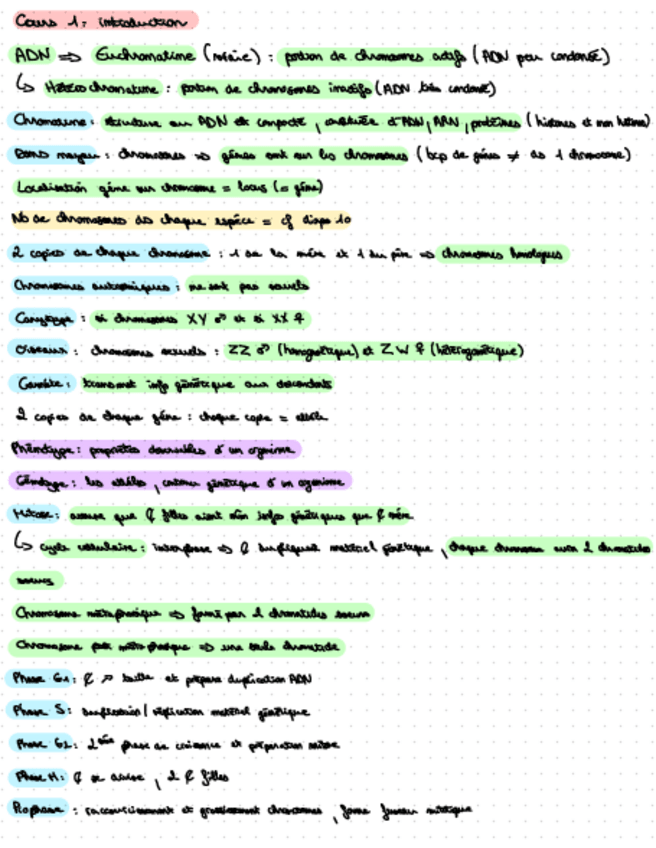 Cours 1 : introduction
ADN => Euchromatine (noire) : portion de chromosomes actifs (ADN peu condensé)
↳ Hétérochromatine : portion de chromosomes inactifs (ADN très condensé)
Chromatine : structure où ADN est compacté, constituée d'ADN, ARN, protéines (histones et non histones)
: chromosomes => gènes sont sur les chromosomes (bcp de gènes ≠ ds 1 chromosome)
Localisation gène sur chromosome = locus (= gène)
Nb de chromosomes ds chaque espèce = cf diapo 10
2 copies de chaque chromosome : 1 de la mère et 1 du père => chromosomes homologues
Chromosomes autosomiques : ne sont pas sexuels
Caryotype : si chromosomes XY ♂ et si XX ♀
Oiseaux : chromosomes sexuels : ZZ ♂ (homogamétique) et ZW ♀ (hétérogamétique)
Gamète : transmet info génétique aux descendants
2 copies de chaque gène : chaque copie = allèle
Phénotype : propriétés observables d'un organisme
Génotype : les allèles, contenu génétique d'un organisme
Mitose : assure que ₵ filles aient mêm infos génétiques que ₵ mère
↳ cycle cellulaire : interphase => ₵ dupliquent matériel génétique, chaque chromosome aura 2 chromatides
soeurs
Chromosome métaphasique => formé par 2 chromatides soeurs
Chromosome post métaphasique => une seule chromatide
Phase G1 : ₵ ↗ taille et prépare duplication ADN
Phase S : duplication / réplication matériel génétique
Phase G2 : 2ème phase de croissance et préparation mitose
Phase M : ₵ se divise, 2 ₵ filles
Prophase : raccourcissement et grossissement chromosomes, forme fuseau mitotique